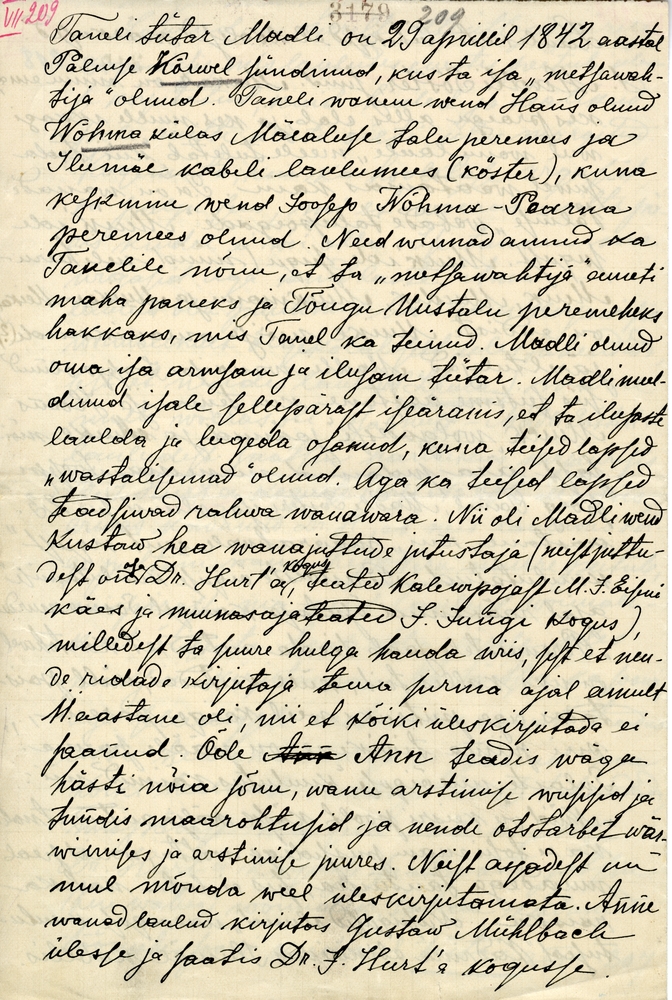 VII.209
3179 209
Taneli tütar Madli on 29 aprillil 1842 aastal
Palmse Kõrwel sündinud, kus ta isa „metsawah-
tija“ olnud. Taneli wanem wend Hans olnud
Wohma külas Mäealuse talu peremees ja
Ilumäe kabeli laulumees (köster), kuna
keskmine wend Joosep Wohma-Paarna
peremees olnud. Need wennad annud ka
Tanelile nõuu, et ta „metsawahtija“ ameti
maha paneks ja Tõugu Uustalu peremeheks
hakkaks, mis Tanel ka teinud. Madli olnud
oma isa armsam ja ilusam tütar. Madli meel-
dinud isale sellepärast iseäranis, et ta ilusaste
laulda ja lugeda osanud, kuna teised lapsed
„wastalisemad“ olnud. Aga ka teised lapsed
teadsiwad rahwa wanawara. Nii oli Madli wend
Kustaw hea wanajuttude jutustaja (neist juttu-
dest on Dr. Hurt'a kogus, teated Kalewipojast M. J. Eiseni
käes ja muinasaja teated J. Jungi kogus),
milledest ta suure hulga hauda wiis, sest et nen-
de ridade kirjutaja tema surma ajal ainult
11 aastane oli, nii et kõiki üleskirjutada ei
saanud. Õde Ann Ann teadis wäga
hästi nõia sõnu, wanu arstimise wiisisid ja
tundis maarohtusid ja nende otstarbet wär-
wimises ja arstimise juures. Neist asjadest on
mul mõnda weel üleskirjutamata. Anne
wanad laulud kirjutas Gustaw Mühlbach
ülesse ja saatis Dr. J. Hurt'a kogusse.